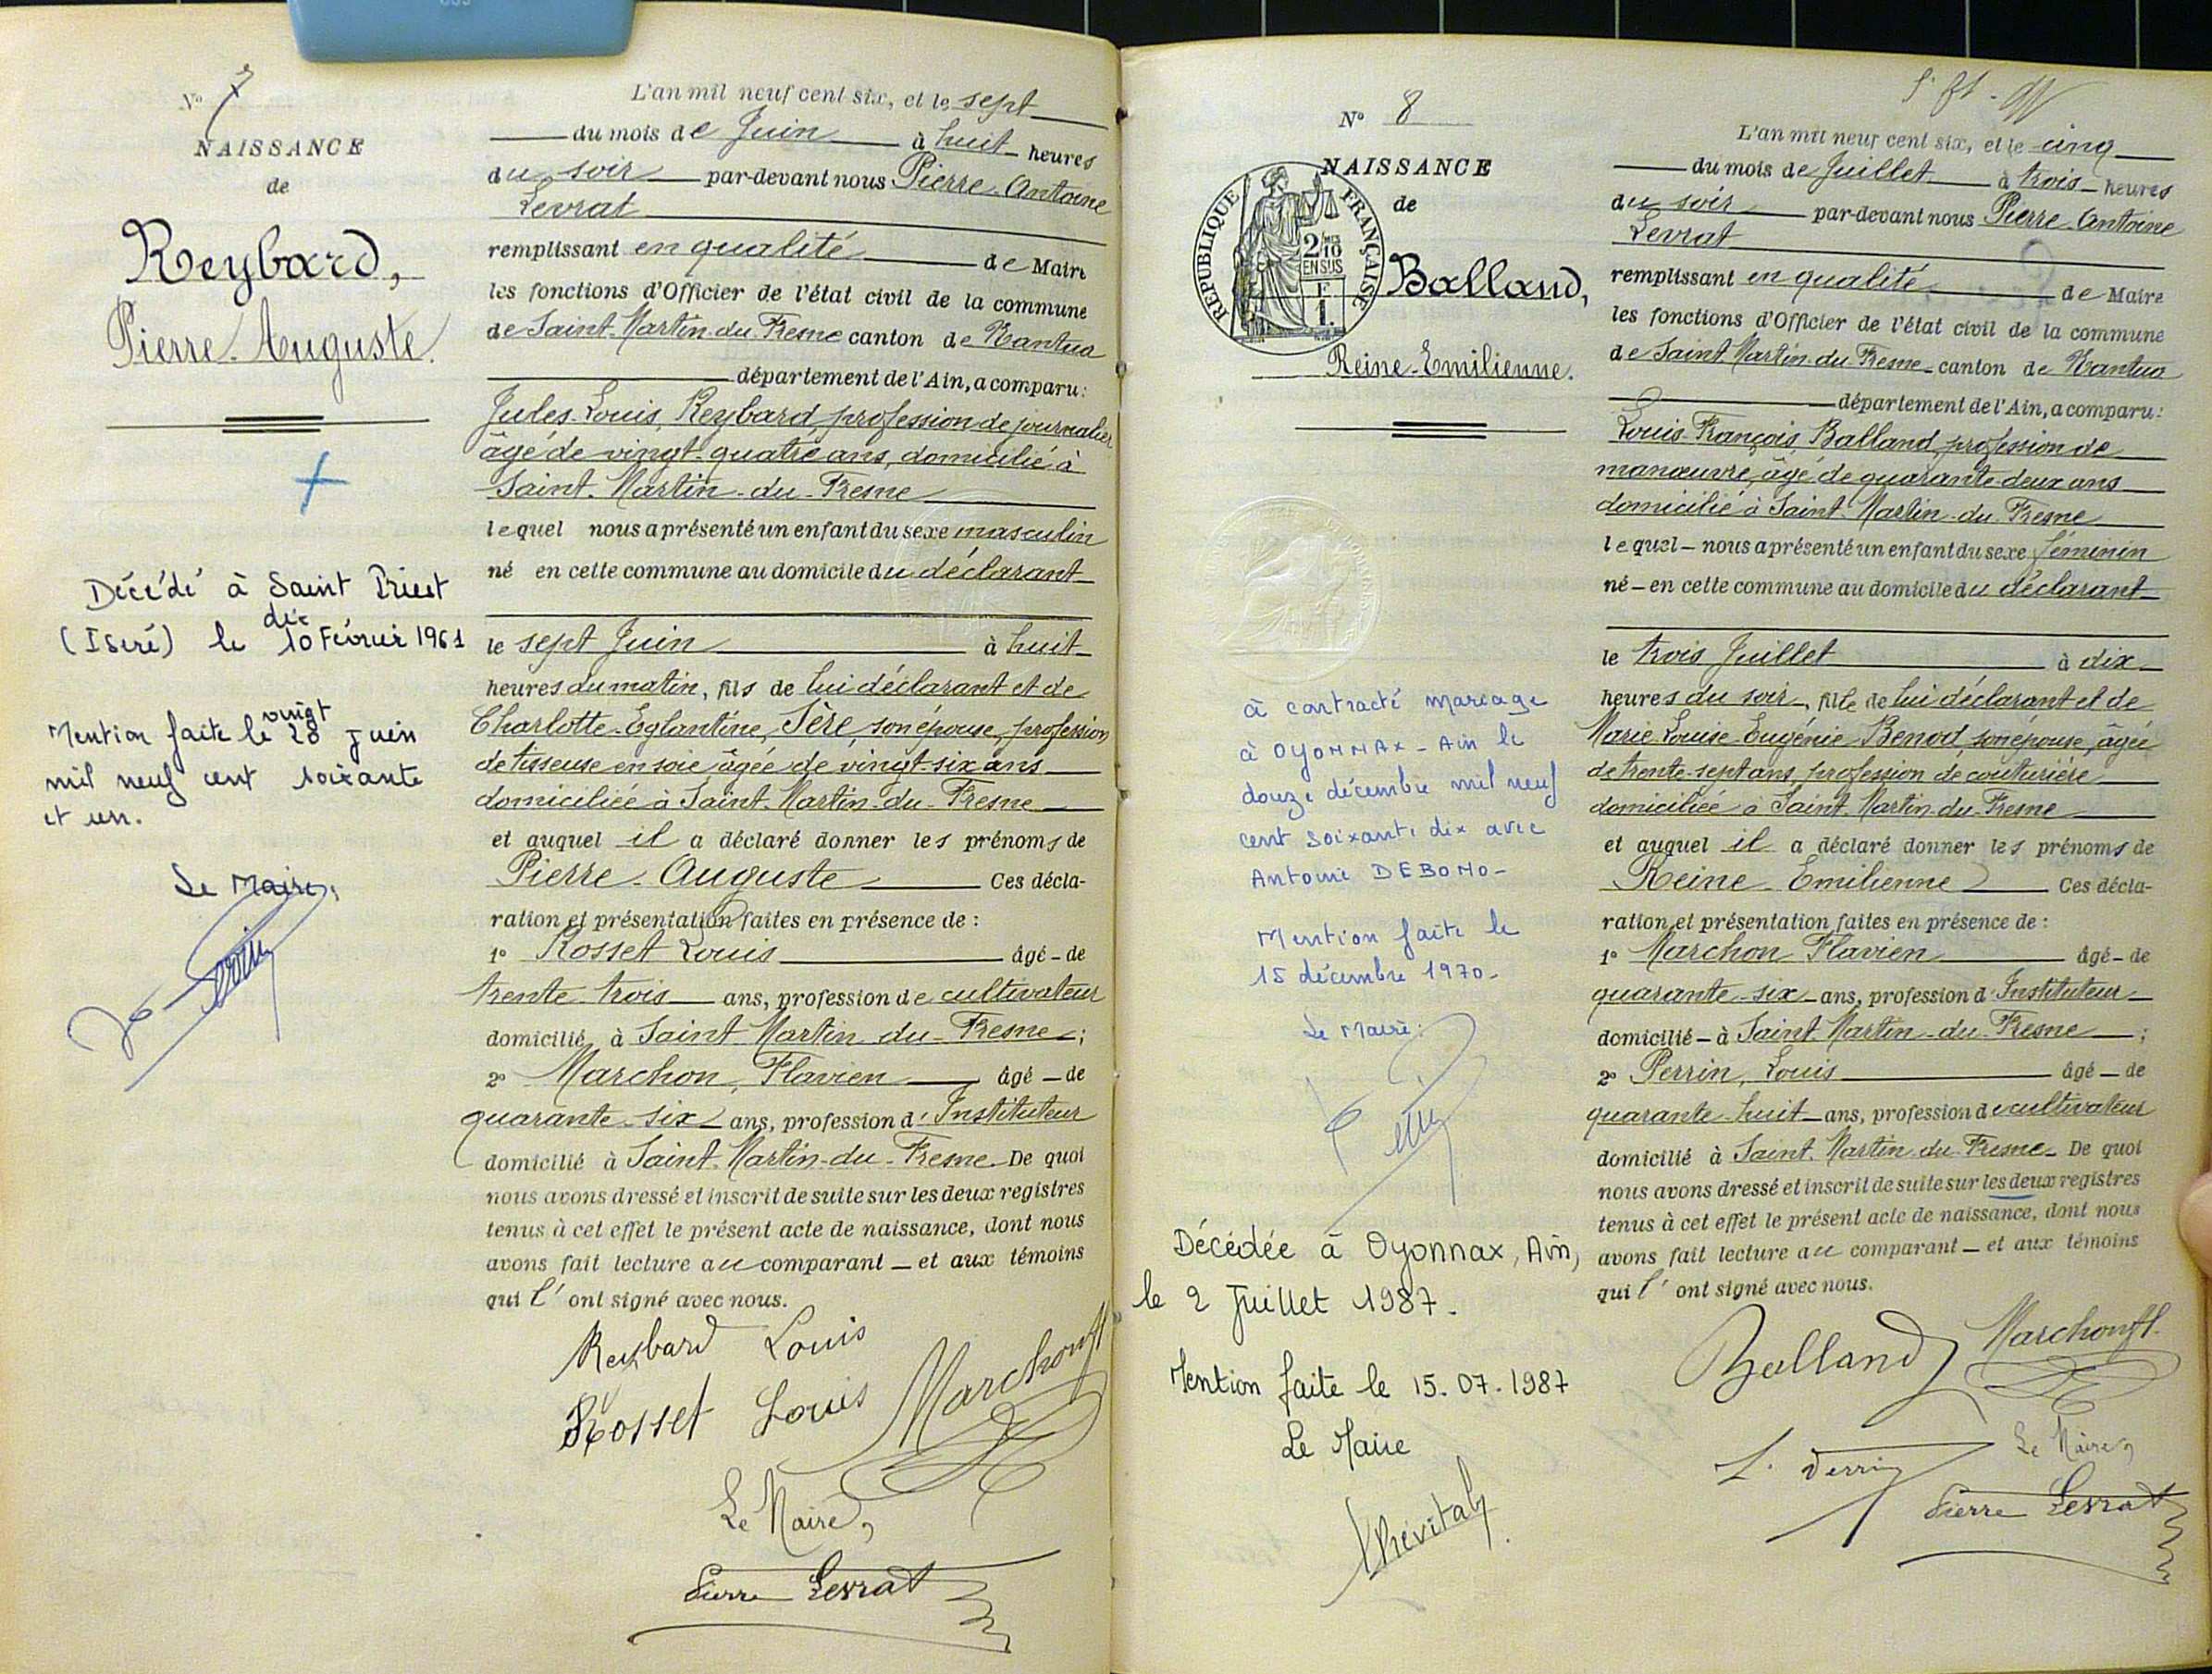 N° 7
NAISSANCE
de
Reybard,
Pierre-Auguste.
Décédé à Saint Priest
(Isère) le dix 10 Février 1961
Mention faite le vingt 20 juin
mil neuf cent soixante
et un.
Le Maire,
L'an mil neuf cent six, et le sept
du mois de Juin à huit heures
du soir par-devant nous Pierre-Antoine
Levrat
remplissant en qualité de Maire
les fonctions d'Officier de l'état civil de la commune
de Saint-Martin-du-Fresne canton de Nantua
département de l'Ain, a comparu:
Jules-Louis, Reybard, profession de journalier
âgé de vingt-quatre ans, domicilié à
Saint-Martin-du-Fresne
lequel nous a présenté un enfant du sexe masculin
né en cette commune au domicile du déclarant
le sept Juin à huit
heures du matin, fils de lui déclarant et de
Charlotte-Eglantine, Sère, son épouse, profession
de tisseuse en soie âgée de vingt-six ans
domiciliée à Saint-Martin-du-Fresne
et auquel il a déclaré donner les prénoms de
Pierre-Auguste Ces décla-
ration et présentation faites en présence de :
1° Rosset Louis âgé de
trente-trois ans, profession de cultivateur
domicilié à Saint-Martin-du-Fresne ;
2° Marchon, Flavien âgé de
quarante-six ans, profession d'Instituteur
domicilié à Saint-Martin-du-Fresne. De quoi
nous avons dressé et inscrit de suite sur les deux registres
tenus à cet effet le présent acte de naissance, dont nous
avons fait lecture au comparant et aux témoins
qui l'ont signé avec nous.
Reybard Louis
Rosset Louis Marchon fl
Le Maire,
Pierre Levrat
N° 8
NAISSANCE
de
REPUBLIQUE FRANÇAISE
2/10
EN SUS
1
Balland,
Reine-Emilienne.
à contracté mariage
à OYONNAX - Ain le
douze décembre mil neuf
cent soixante dix avec
Antoine DEBONO-
Mention faite le
15 décembre 1970-
Le Maire:
Décédée à Oyonnax, Ain,
le 2 Juillet 1987.
Mention faite le 15.07.1987
Le Maire
L'an mil neuf cent six, et le cinq
du mois de Juillet à trois heures
du soir par-devant nous Pierre-Antoine
Levrat
remplissant en qualité de Maire
les fonctions d'Officier de l'état civil de la commune
de Saint-Martin-du-Fresne canton de Nantua
département de l'Ain, a comparu:
Louis-François, Balland, profession de
manœuvre, âgé de quarante-deux ans
domicilié à Saint-Martin-du-Fresne
lequel nous a présenté un enfant du sexe féminin
né en cette commune au domicile du déclarant
le trois Juillet à dix
heures du soir, fille de lui déclarant et de
Marie-Louise Eugénie Benod, son épouse, âgée
de trente-sept ans, profession de couturière
domiciliée à Saint-Martin-du-Fresne
et auquel il a déclaré donner les prénoms de
Reine-Emilienne Ces décla-
ration et présentation faites en présence de :
1° Marchon Flavien âgé de
quarante-six ans, profession d'Instituteur
domicilié à Saint-Martin-du-Fresne ;
2° Perrin, Louis âgé de
quarante-huit ans, profession de cultivateur
domicilié à Saint-Martin-du-Fresne. De quoi
nous avons dressé et inscrit de suite sur les deux registres
tenus à cet effet le présent acte de naissance, dont nous
avons fait lecture au comparant et aux témoins
qui l'ont signé avec nous.
Balland Marchon fl.
L. Perrin Le Maire,
Pierre Levrat